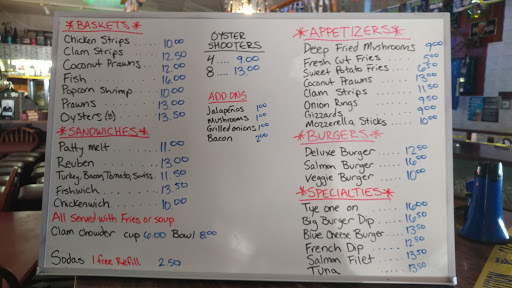 *BASKETS*
Chicken Strips .... 10.00
Clam Strips ..... 12.50
Coconut Prawns .... 12.00
Fish ........ 16.00
Popcorn Shrimp .... 10.00
Prawns ....... 13.00
Oysters (8) ...... 13.50
*SANDWICHES*
Patty melt ...... 11.00
Reuben ....... 13.00
Turkey, Bacon, Tomato, Swiss .. 11.50
Fishwich ....... 13.50
Chickenwich ...... 10.00
All Served with Fries or soup
Clam chowder cup 6.00 Bowl 8.00
Sodas 1 free Refill 2.50
OYSTER
SHOOTERS
4 .... 9.00
8 .... 13.00
ADD ONS
Jalapeños 1.00
Mushrooms 1.00
Grilled onions 1.00
Bacon 2.00
*APPETIZERS*
Deep Fried Mushrooms 9.00
Fresh Cut Fries .... 5.00
Sweet Potato Fries ..
Coconut Prawns .... 13.00
Clam Strips ..... 11.50
Onion Rings ..... 9.50
Gizzards ...... 9.00
Mozzerella Sticks ... 10.00
*BURGERS*
Deluxe Burger .... 12.50
Salmon Burger .... 16.00
Veggie Burger .... 10.00
*SPECIALTIES*
Tye one on ..... 16.00
Big Burger Dip .... 16.50
Blue Cheese Burger .. 13.50
French Dip ..... 12.50
Salmon Filet .... 13.50
Tuna ....... 13.50